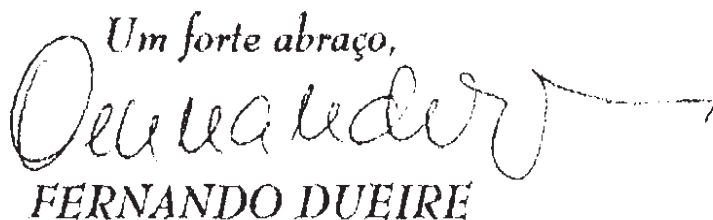 Um forte abraço,
FERNANDO DUEIRE